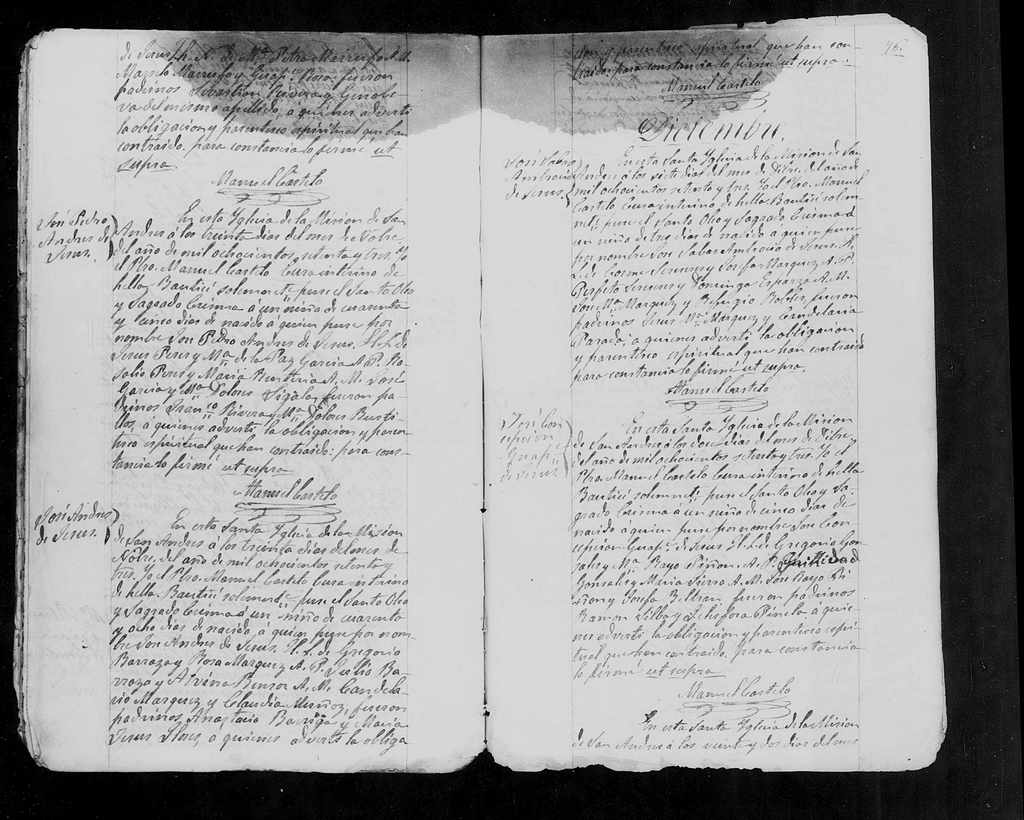 de Jesus, h. l. de Ma. Petra Marrufo A. M.
Magdo. Marrufo y Guape. Piora: fueron
padrinos Sebastian Rivera y Genobe
va del mismo apellido, a quienes adverti
la obligacion y parentesco espiritual que han
contraido. para constancia lo firmé ut
supra
Manuel Castelo
José Pedro
Andres de
Jesus.
En esta Yglecia de la Mision de San
Andres á los treinta dias del mes de Nobre.
del año de mil ochocientos setenta y tres. Yo
el Pbro. Manuel Castelo Cura interino de
hella Bautisé solemente. puse el Santo Oleo
y Sagrado Crisma á un niño de cuarenta
y cinco dias de nasido a quien puse por
nombre José Pedro Andres de Jesus. H. L. de
Jesus Peres y Ma. de la Paz Garcia A. P. Ro
salio Peres y Maria Renteria A. M. José
Garcia y Ma. Dolores Sigala, fueron pa
drinos Franco. Rivera y Ma. Dolores Busti
llos, á quienes adverti la obligacion y paren
tesco espiritual que han contraido: para cons
tancia lo firmé ut supra
Manuel Castelo
José Andres
de Jesus.
En esta Santa Yglecia de la Mision
de San Andres á los treinta dias del mes de
Nobre. del año de mil ochocientos setenta y
tres. Yo el Pbro. Manuel Castelo Cura interino
de hella. Bautisé solemente. puse el Santo Oleo
y Sagrado Crisma á un niño de cuarenta
y ocho dias de nasido, a quien puse por nom
bre José Andres de Jesus. H. L. de Gregorio
Barraza y Rosa Marquez A. P. Julio Ba
rraza y Alvina A. M. Candela
rio Marquez y Claudia Muñoz, fueron
padrinos Anastacio Barriga y Maria
Jesus Flores, a quienes adverti la obliga
46
cion y parentesco espiritual que han con
traido. para constancia lo firmé ut supra.
Manuel Castelo
Diciembre.
José Sabas
Ambrocio
de Jesus.
En esta Santa Yglecia de la Mision de San
Andres á los siete dias del mes de Dibre. del año de
mil ochocientos setenta y tres. Yo el Pbro. Manuel
Castelo Cura interino de hella Bautisé solem
nete. puse el Santo Oleo y Sagrado Crisma á
un niño de tres dias de nasido a quien puse
por nombre José Sabas Ambrocio de Jesus. H.
L. de Cosme y Josefa Marquez A. P.
Perfeto y Dominga Esparza A. M.
José Ma. Marquez y Refugio Robles, fueron
padrinos Jesus Ma. Marquez y Candelaria
Parada, a quienes adverti la obligacion
y parentesco espiritual que han contraido
para constancia lo firmé ut supra.
Manuel Castelo
José Con
cepcion
Guape.
de Jesus
En esta Santa Yglecia de la Mision
de San Andres á los doce dias del mes de Dibre.
del año de mil ochocientos setenta y tres. Yo el
Pbro. Manuel Castelo Cura interino de hella
Bautisé solemnete. puse el Santo Oleo y Sa
grado Crisma á un niño de cinco dias de
nasido á quien puse por nombre José Con
cepcion Guape. de Jesus H. L. de Gregorio Gon
zales y Ma. Rayo Piñon. A. P. Trinidad
Gonzales y Maria Sierra A. M. José Rayo Pi
ñon y Josefa Beltran fueron padrinos
Ramon Villa y Telesfora Pinela á quie
nes adverti la obligacion y parentesco espiri
tual que han contraido, para constancia
lo firmé ut supra
Manuel Castelo
En esta Santa Yglecia de la Mision
de San Andres á los veinte y dos dias del mes